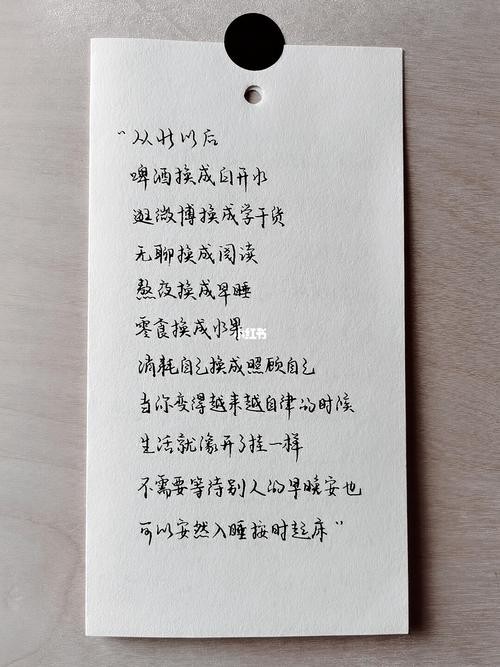 “从此以后
啤酒换成白开水
逛微博换成学干货
无聊换成阅读
熬夜换成早睡
零食换成水果
小红书
消耗自己换成照顾自己
当你变得越来越自律的时候
生活就像开了挂一样
不需要等待别人的早晚安也
可以安然入睡按时起床”